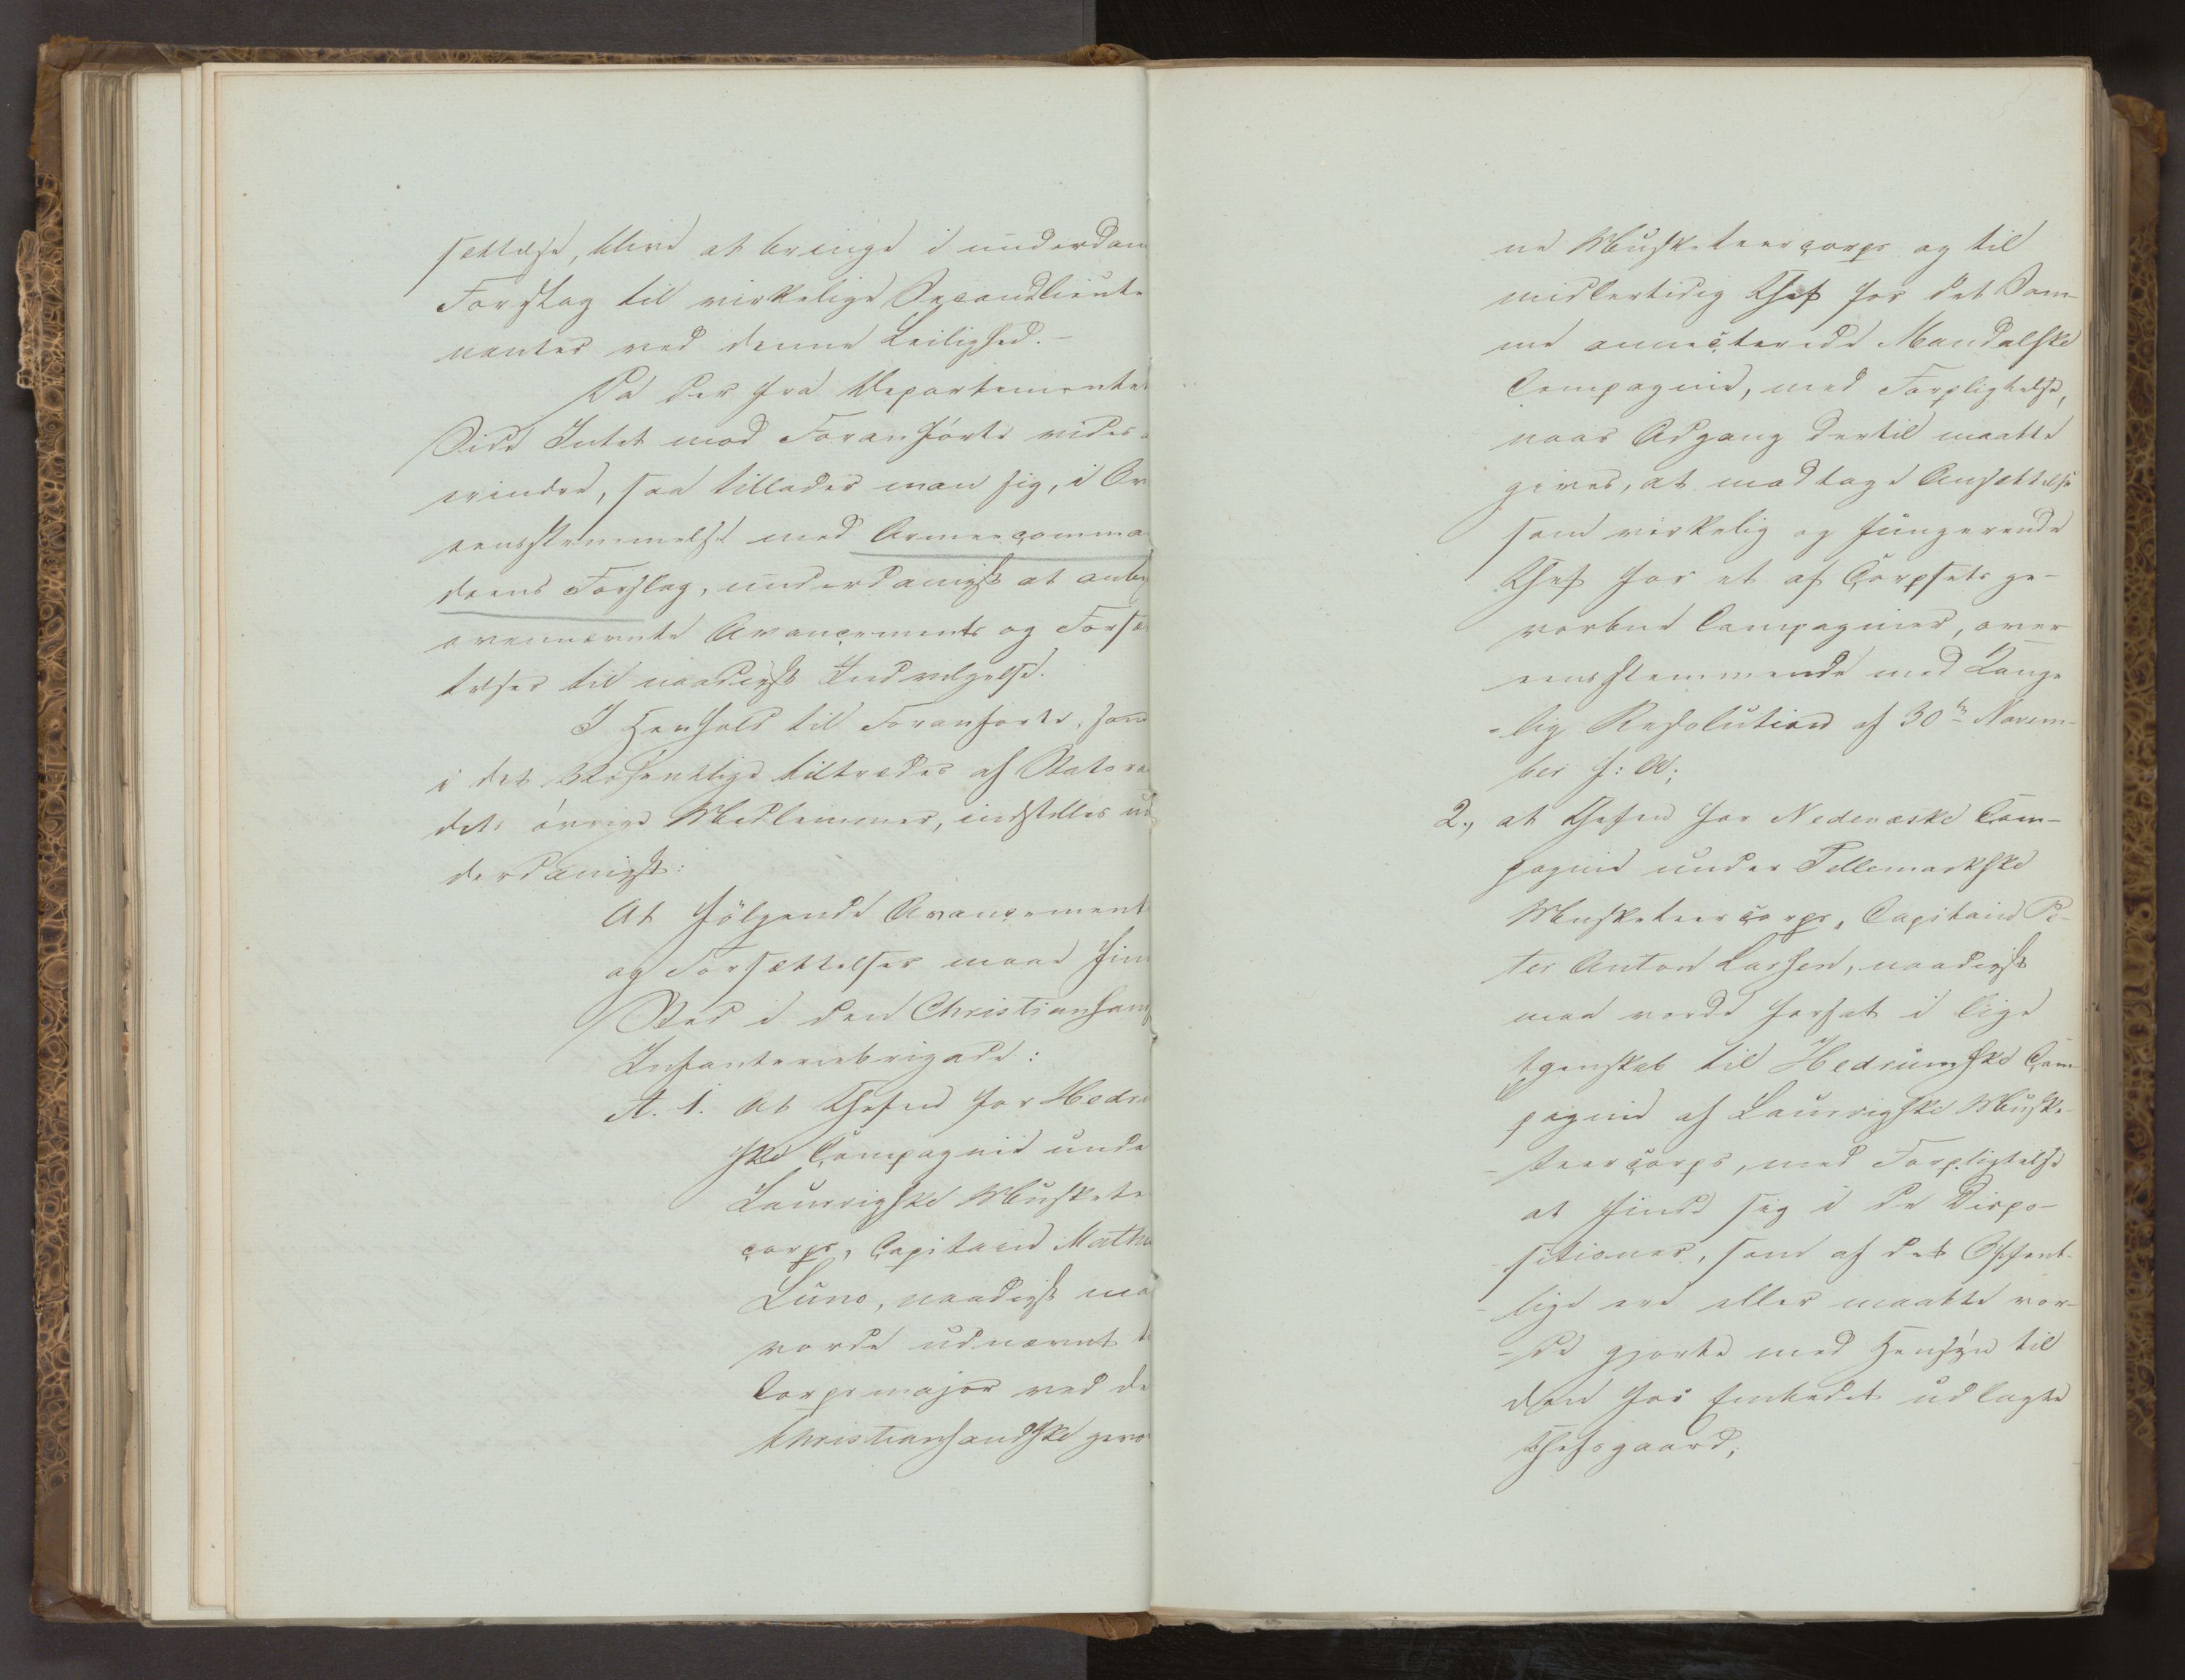 sættelse, blive at bringe i underdan
Forslag til virkelige Secondlieute
nanter ved denne Leilighed. –
Da der fra Departementet
Side Intet mod Foranførte vides
erindre, saa tillader man sig, i Ov
eensstemmelse med Armeecomma
doens Forslag, underdanigst at anbe
ovennævnte Avancements og Forsæ
telser til naadigst Indvilgelse.
I Henhold til Foranførte, som
i det Væsentlige tiltrædes af Statsra
dets øvrige Medlemmer, indstilles un
derdanigst:
At følgende Avancement
og Forsættelser maae fin
Sted i den Christiansand
Infanteriebrigade:
A. 1. At Chefen for Hedru
ske Compagnie unde
Laurvigske Muskete
corps, Capitaine Math
Luno, naadigst ma
vorde udnævnt t
Corpsmajor ved de
Christiansandske gevo
ne Musketeercorps og til
midlertidig Chef for det Sam-
me annecterede Mandalske
Compagnie, med Forpligtelse,
naar Adgang dertil maatte
gives, at modtage Ansættelse
som virkelig og fungerende
Chef for et af Corpsets ge-
vorbne Compagnier, over-
eensstemmende med Konge
-lig Resolution af 30te Novem-
ber f: A;
2., at Chefen for Nedenæske Com-
pagnie under Tellemarkske
Musketeercorps, Capitaine Pe-
ter Anton Larsen, naadigst
maa vorde forsat i lige
Egenskab til Hedrumske Com-
pagnie af Laurvigske Muske-
-teercorps, med Forpligtelse
at finde sig i de Dispo-
sitioner, som af det Offent-
-lige ere eller maatte vor-
-de gjorte med Hensyn til
den for Embedet udlagte
Chefsgaard;